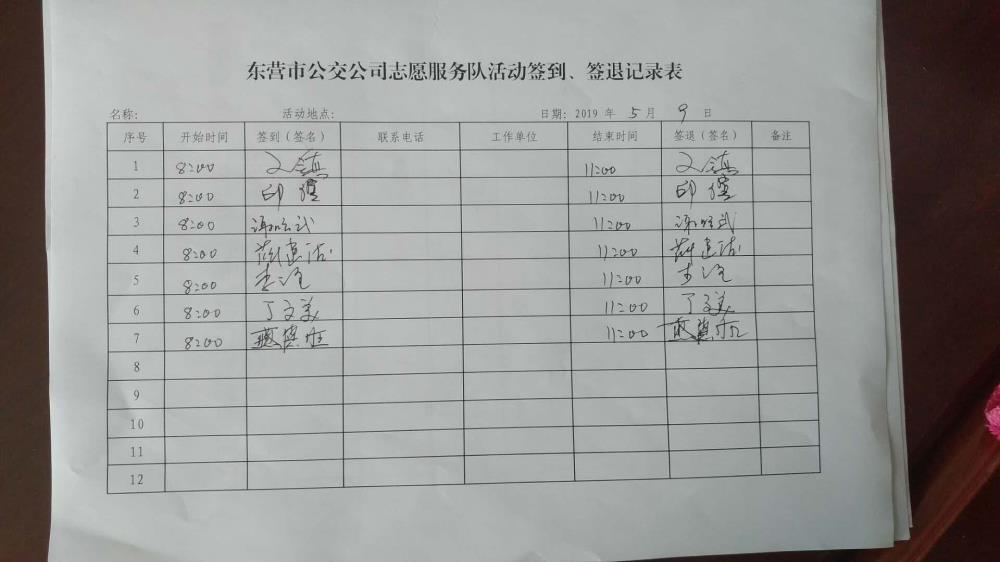 东营市公交公司志愿服务队活动签到、签退记录表
名称: 活动地点: 日期: 2019 年 5 月 9 日
序号 开始时间 签到(签名) 联系电话 工作单位 结束时间 签退(签名) 备注
1 8:00 11:00
2 8:00 11:00
3 8:00 11:00
4 8:00 11:00
5 8:00 11:00
6 8:00 丁文美 11:00 丁文美
7 8:00 11:00
8
9
10
11
12